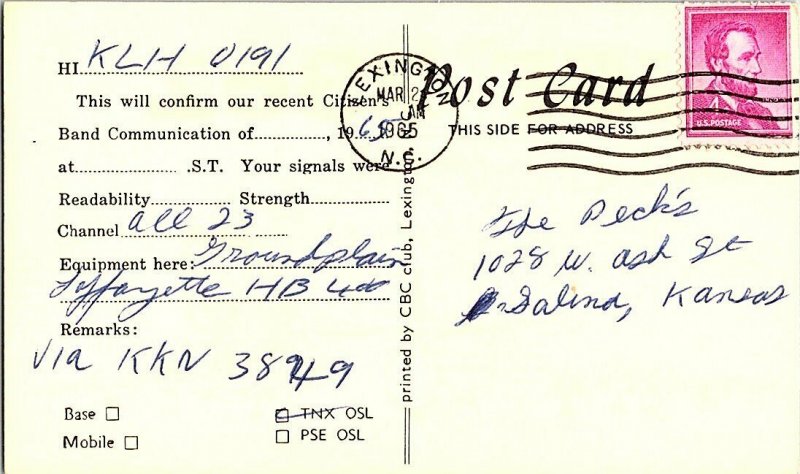 HI KLH 0191
This will confirm our recent Citizen's
Band Communication of............, 19 65
at.................... .S.T. Your signals were
Readability............... Strength...............
Channel all 23
Equipment here: Groundplain
Laffayette HB 400
Remarks:
Via KKN 3849
Base ☐
Mobile ☐
☐ TNX OSL
☐ PSE OSL
printed by CBC club, Lexington, N.C.
LEXINGTON
MAR 2
AM
1965
N.C.
Post Card
THIS SIDE FOR ADDRESS
U.S. POSTAGE
The Peck's
1028 W. Ash St
Salina, Kansas